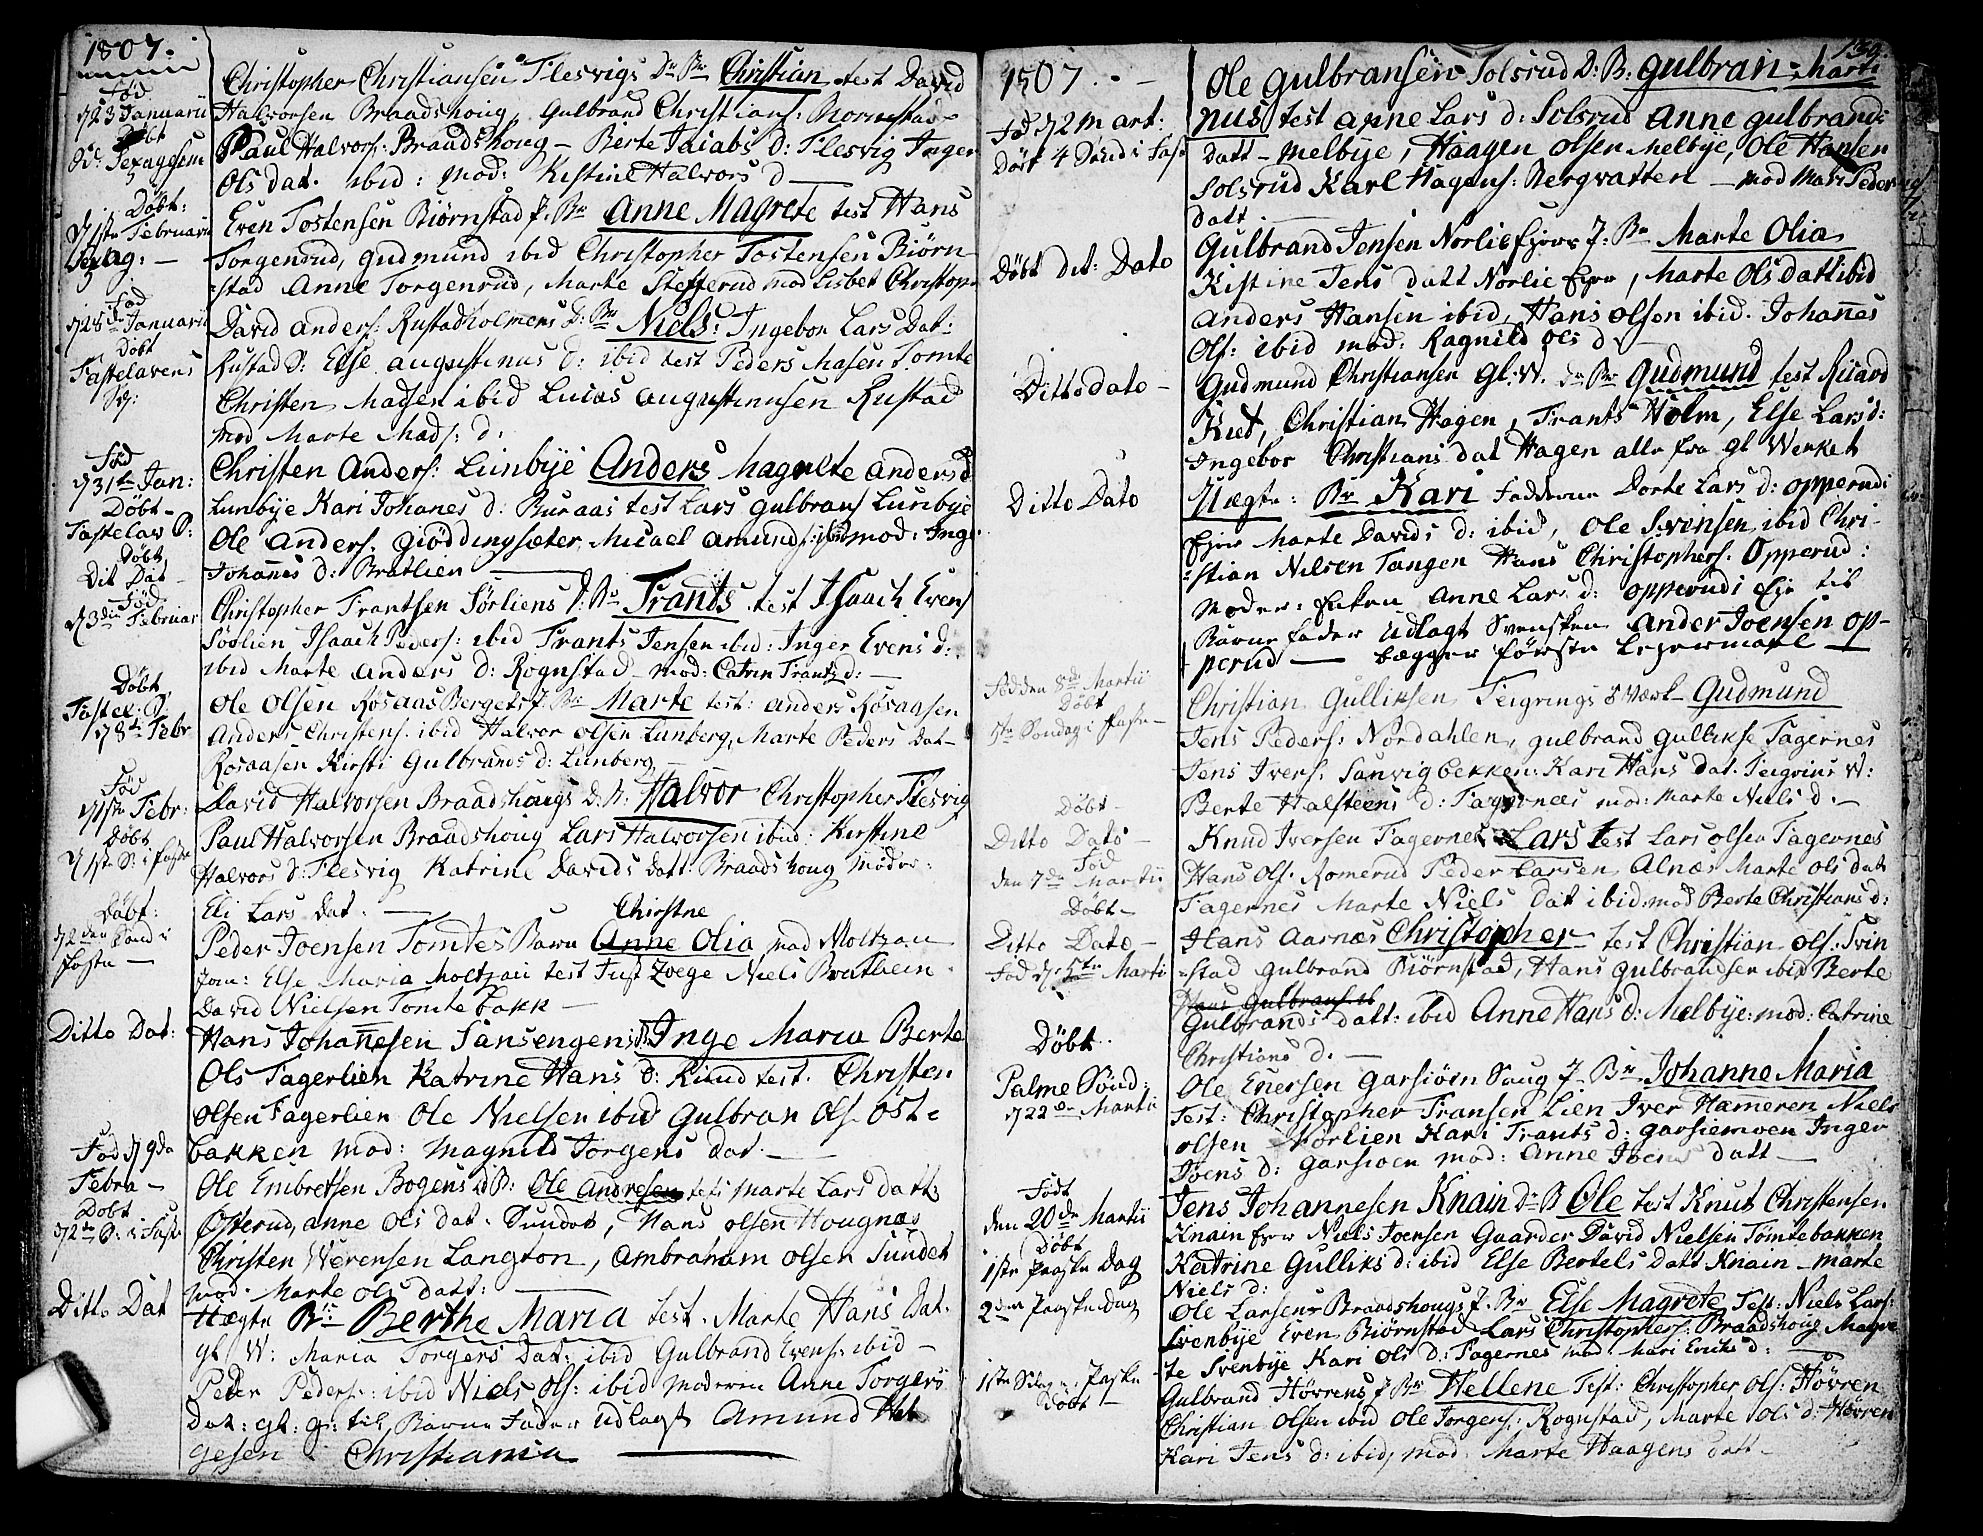 1807.
Fød
d 23 Januarii
Døbt
Sexagesem
Døbt:
d 1ste Februarii
Sexag: —
Fød
d 28de Januarii
Døbt
Fastelavens
Sø:
Fød
d 31te Jan:
Døbt —
Fastelav S:
Døbt
Dit Dat —
Fød
d 3die Februar
Døbt
Fastel: S:
d 8de Febr
Fød
d 1ste Febr:
Døbt
d 1ste S: i Faste
Døbt:
d 2den Sønd i
Faste —
Ditto Dat:
Fød d 9de
Febra —
Døbt
d 2den S: i Faste
Ditto Dat
Christopher Christiansen Flesvigs Dr Bn Christian test David
Halvorsen Braadshoug, Gulbrand Christians: Mornstad
Paul Halvors: Braadshoug — Berte Jaiabs d: Flesvig Inger
Ols dat. ibid: mod: Kistine Halvors d —
Even Tostensen Biørnstad P. Bn Anne Magrete test Hans
Torgenrud, Gudmund ibid Christopher Tostensen Biørn
=stad Anne Torgenrud, Marte Stefferud mod Lisbet Christoph
David Anders: Rustadholmens D: Bn Niels: Ingebor Lars Dat:
Rustad S: Else Augustinus d: ibid test Peders Masen Tomte
Christen Madsen ibid Lucas Augustinusen Rustad
mod Marte Mads: d:
Christen Anders: Lunbye Anders Magrete Anders d
Lunbye Kari Johanes d: Buraas test Lars Gulbrans Lunbye
Ole Anders. Giøddingsæter, Micael Amunds ibid mod: Inge
Johanes d: Bratlien —
Christopher Frantsen Sørliens D: Bn Frants test Isaach Evens
Sørlien Isaach Peders: ibid Frants Jensen ibid: Inger Evens d:
ibid Marte Anders d: Rognstad mod: Catrin Frantz d: —
Ole Olsen Rosaas Bergets P. Bn Marte test: Anders Rosaasen
Anders Christens. ibid Halvor Olsen Lunberg, Marte Peders Dat —
Rosaasen Kirsti Gulbrands d: Lunberg —
David Halvorsen Braadshougs D. B. Halvor Christopher Flesvig
Paul Halvorsen Braadshoug Lars Halvorsen ibid: Kirstine
Halvors d: Flesvig Katrine Davids Datt: Braadshoug Moder:
Eli Lars Dat. —
Chirstne
Peder Joensen Tomtes Barn Anne Olia mod Moltzau
Jom: Else Maria Moltzau test Just Zoege Niels Brathein
David Nielsen Tomte bakk —
Hans Johannesen Sansengens D. Inge Maria Berte
Ols Fagerlien Katrine Hans d: Kiind test. Christen
Olsen Fagerlien Ole Nielsen ibid Gulbran Ols. Ost-
bakken mod: Magnild Torgens Dat. —
Ole Embretsen Bogens d: B: Ole Andresen test Marte Lars Datt:
Osterud, Anne Ols Dat. Sundet, Hans Olsen Hougnæs
Christen Werensen Langton, Ambraham Olsen Sundet
mod. Marte Ols datt: —
Uægte Bn Berthe Maria test. Marte Hans Dat.
gl W: Maria Torgers Dat: ibid Gulbrand Evens: ibid —
Peder Peders: ibid Niels Ols: ibid Moderen Anne Torgers
Dat: gl: g: til, Barne Fader Udlagt Amund Hel
gesen Christiania —
139.
1807. —
Fød d 2 Mart:
Døbt 4 Sønd i Fast
Døbt dit: Dato
Ditto dato —
Ditto Dato
Fød den 8de Martii
Døbt
5te Søndag i Faste —
Døbt —
Ditto Dato —
Fød
den 7de Martii
Døbt —
Ditto Dato —
Fød d. 5te Marti
Døbt.
Palme Sønd:
d 22de Martii
Født
den 20de Martii
Døbt
1ste Paaske Dag
2den Paaske Dag
1ste S. Paaske
Døbt —
Ole Gulbransen Solsrud D: B: Gulbran Marti
nus test Anne Lars d: Solsrud Anne Gulbrands
Datt — Melbye, Haagen Olsen Melbye, Ole Hansen
Solsrud Karl Hagens: Bergvatten — mod Mari Peder
datt. —
Gulbrand Jensen Norlie Ejers P: Bn Marte Olia
Kistine Jens datt Norlie Ejer, Marte Ols Datt ibid
Anders Hansen ibid, Hans Olsen ibid. Johanes
Ols: ibid mod: Ragnild Ols d. —
Gudmund Christiansen gl: W. dr Bn Gudmund test Riiard
Kiet, Christian Hagen, Frants Holm, Else Lars d:
Ingebor Christians dat Hagen alle fra gl Werket
Uægte: Bn Kari Fadderne Dorte Lars d: Opperud:
Ejer Marte Davids d: ibid, Ole Svensen ibid Chri-
=stian Nilsen Tangen Hans Christophers. Opperud:
Moder: Enken Anne Lars d: Opperud: Eje til
Barne Fader Udlagt Svensken Ander Joensen Op-
perud — begges første Lejermaal —
Christian Gulliksen Teigrings & Værk Gudmund
Jens Peders: Nordahlen, Gulbrand Gullikse Fagernes
Jens Ivers: Sanvigbekken: Kari Hans Dat. Teigrins W:
Berte Halsteens d: Fagernæs mod: Marte Niels d: —
Knud Iversen Fagernes Lars test Lars Olsen Fagernes
Hans Ols. Romerud Peder Larsen Alnæs Marte Ols dat
Fagernes Marte Niels Dat ibid: mod Berte Christians d:
Hans Aarnæs Christopher test Christian Ols: Svin
=stad Gulbrand Biørnstad, Hans Gulbrandsen ibid Berte
Hans Gulbrans. ib
Gulbrands datt: ibid Anne Hans d: Melbye: mod: Catrine
Christians d. —
Ole Enersen Garsiøen Saug P. Bn Johanne Maria
Test: Christopher Fransen Lien Iver Hæmeren Niels
Olsen Nørlien Kari Frants d: Garsiemoen Inger
Joens d: Garsioen mod: Anne Joens datt —
Jens Johannesen Knain Dr B Ole test Knut Christensen
Knain Ejer Niels Joensen Gaarder David Nielsen Tømtebakken
Katrine Gulliks d: ibid Else Bertels Datt Knain — Marte
Niels d:
Ole Larsens Braadshougs P. Bn Else Magrete, Test: Niels Lars:
Svenbye Even Biørnstad Lars Christophers: Braadshoug Magre
te Svenbye Kari Ols d: Fagernes mod Mari Eriks d: —
Gulbrand Høvrens P Bn Hellene Test: Christopher Ols: Høvren
Christian Olsen ibid Ole Torgens: Rognstad, Marte Ols d: Høvren
Kari Jens d: ibid, mod. Marte Haagens datt —